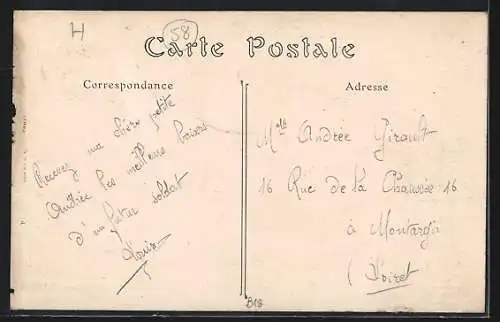 H
58
Carte Postale
Correspondance
Adresse
Recevez ma chère petite
Andrée les meilleurs baisers
d'un futur soldat
Louis
Mlle Andrée Girault
16 Rue de la Chaussée 16
à Montargis
(Loiret
B18